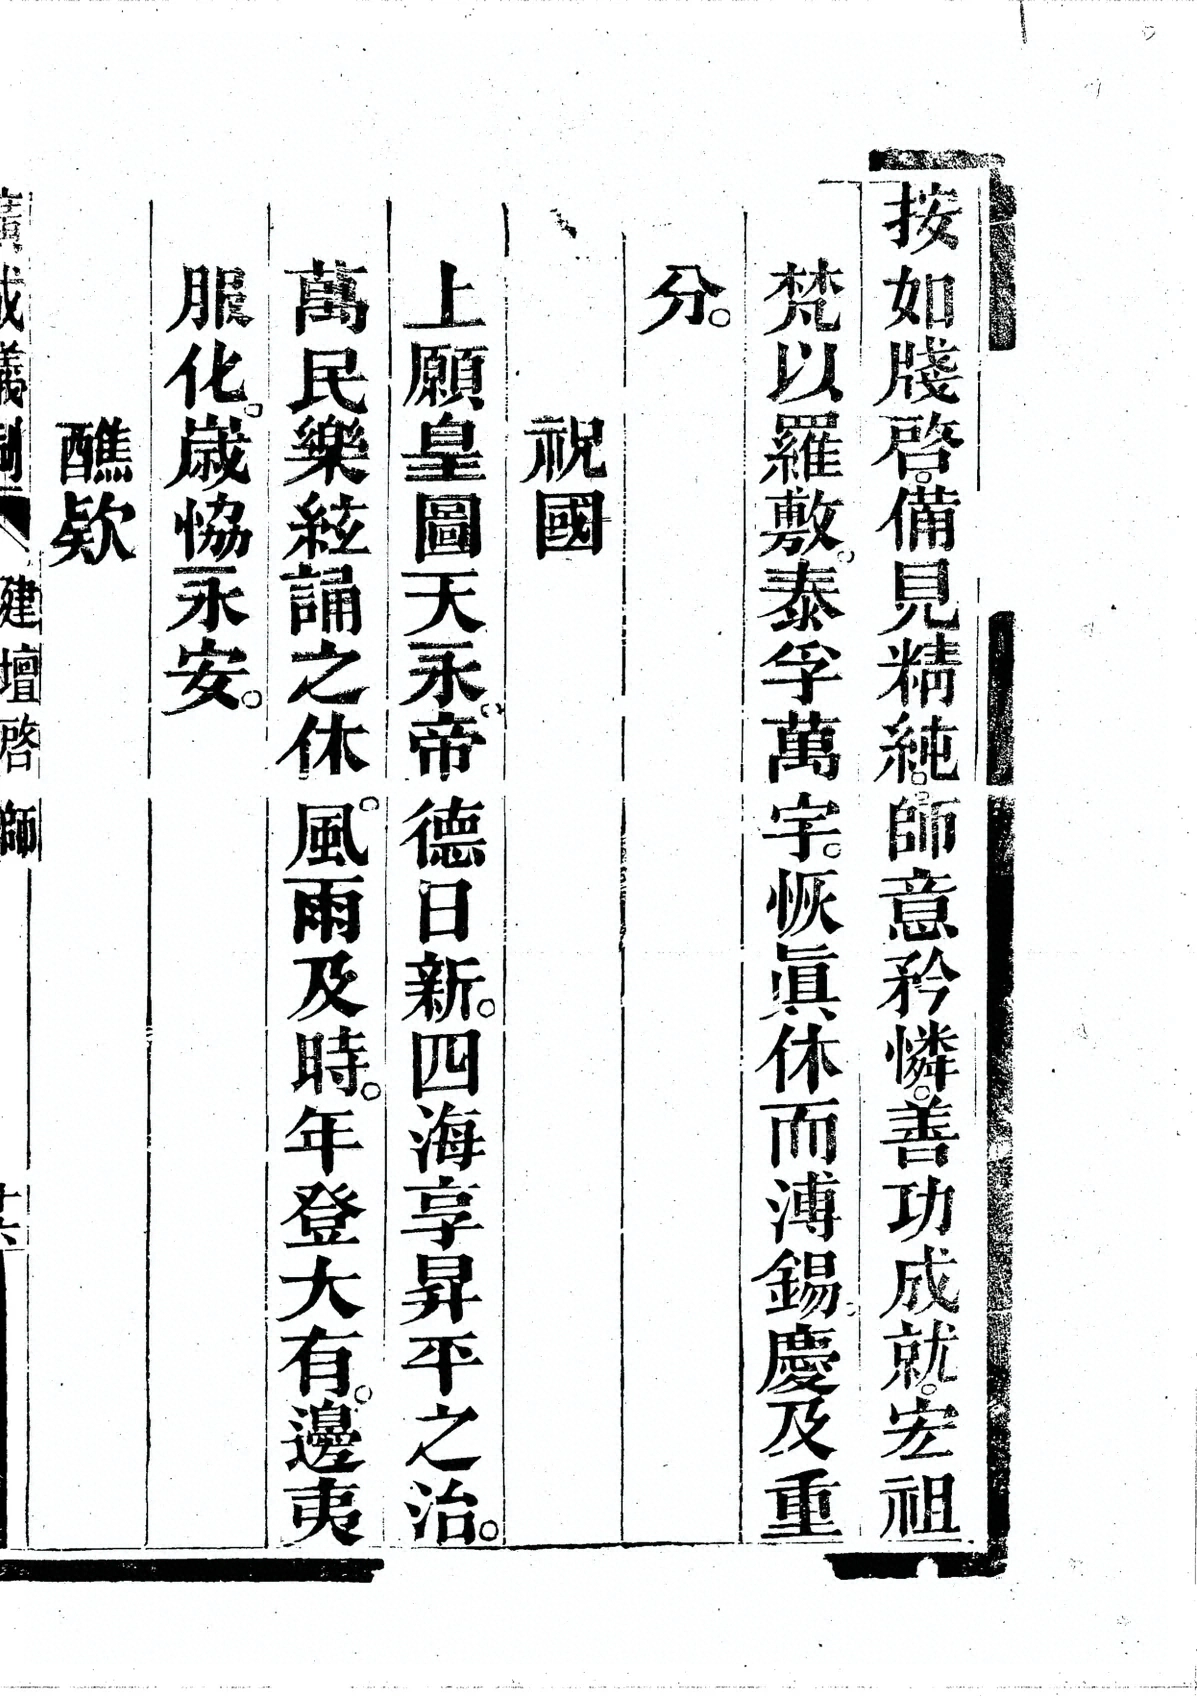 按如牋啓。備見精純。師意矜憐。善功成就。宏祖
梵以羅敷。泰孚萬宇。恢眞休而溥錫。慶及重
分。
祝國
上願皇圖天永。帝德日新。四海享昇平之治。
萬民樂絃誦之休。風雨及時。年登大有。邊夷
服化。歲協永安。
醮欵
廣成儀制 建壇啓師 十六